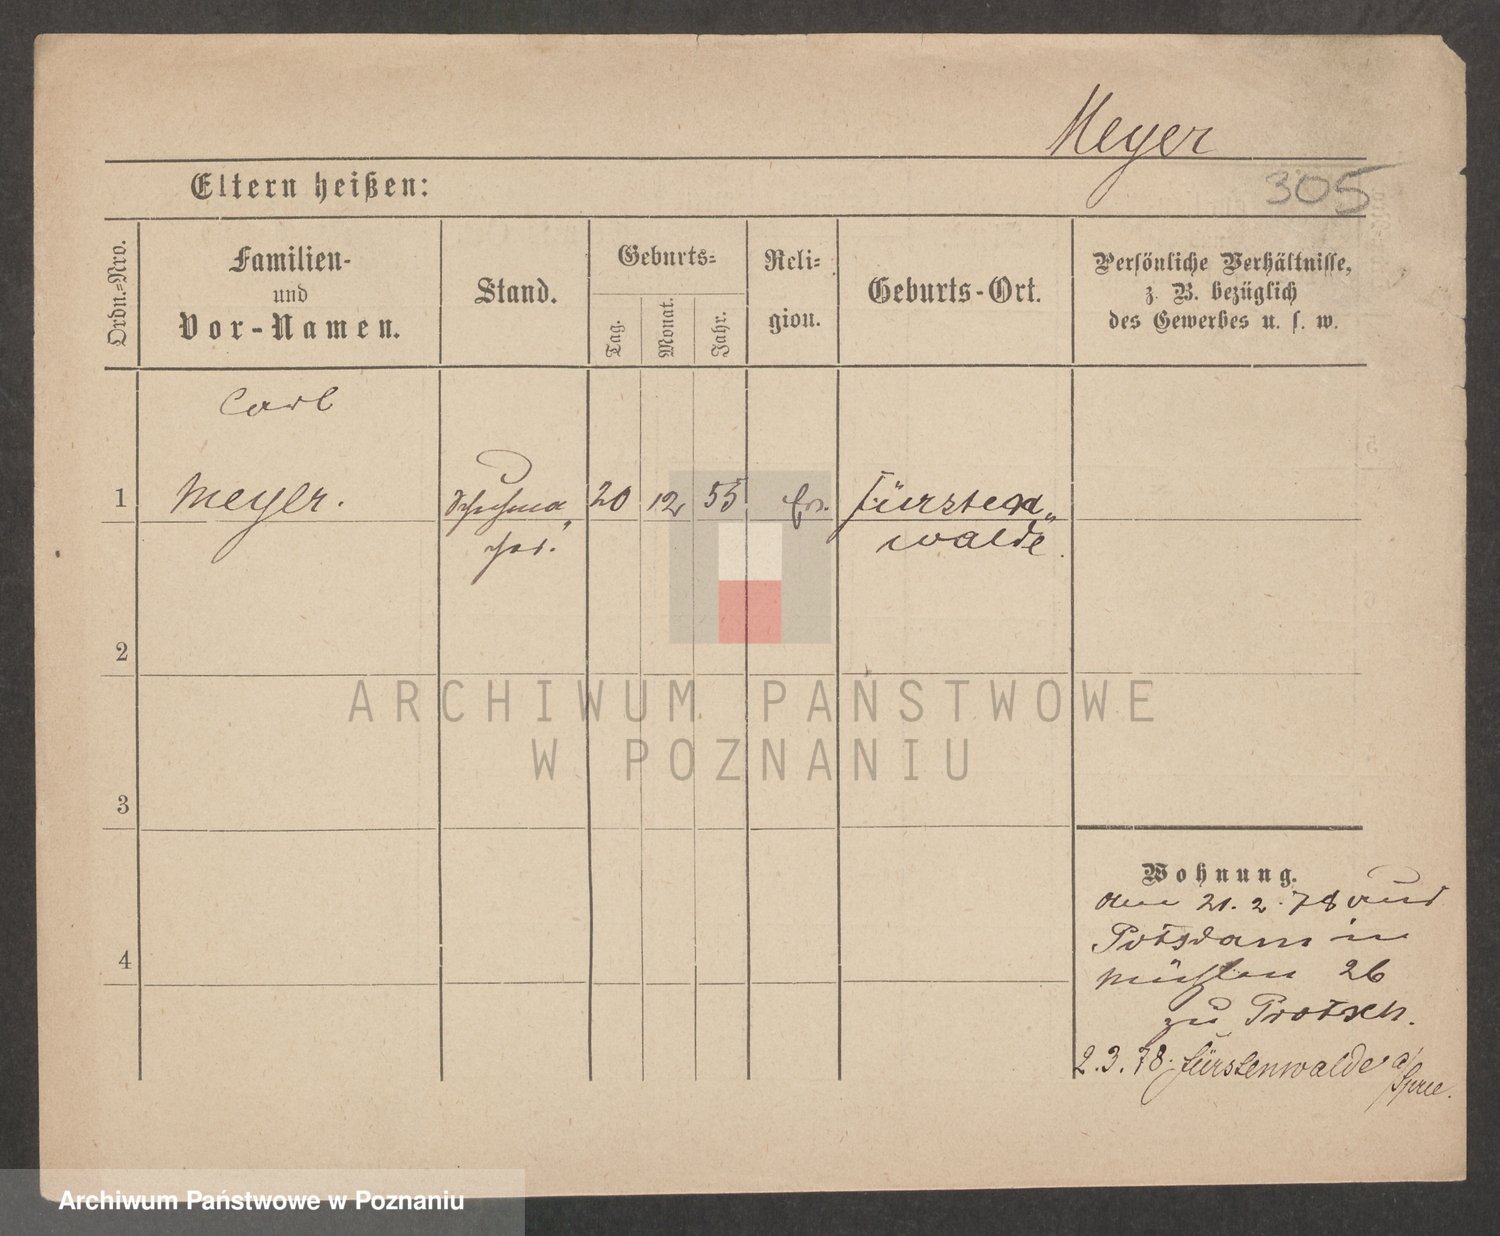 Meyer
Eltern heißen:
305
Ordn.-Nro.
Familien-
und
Vor-Namen.
Stand.
Geburts-
Tag.
Monat.
Jahr.
Reli-
gion.
Geburts-Ort.
Persönliche Verhältnisse,
z. B. bezüglich
des Gewerbes u. s. w.
Carl
1 Meyer. Schuhma„ 20 12 55 Ev. Fürsten„
cher. walde.
2
ARCHIWUM PAŃSTWOWE
W POZNANIU
3
Wohnung.
den 21. 2. 78 aus
Potsdam in
4
Mühlen 26
zu
2.3.78. Fürstenwalde a/
Spree.
Archiwum Państwowe w Poznaniu